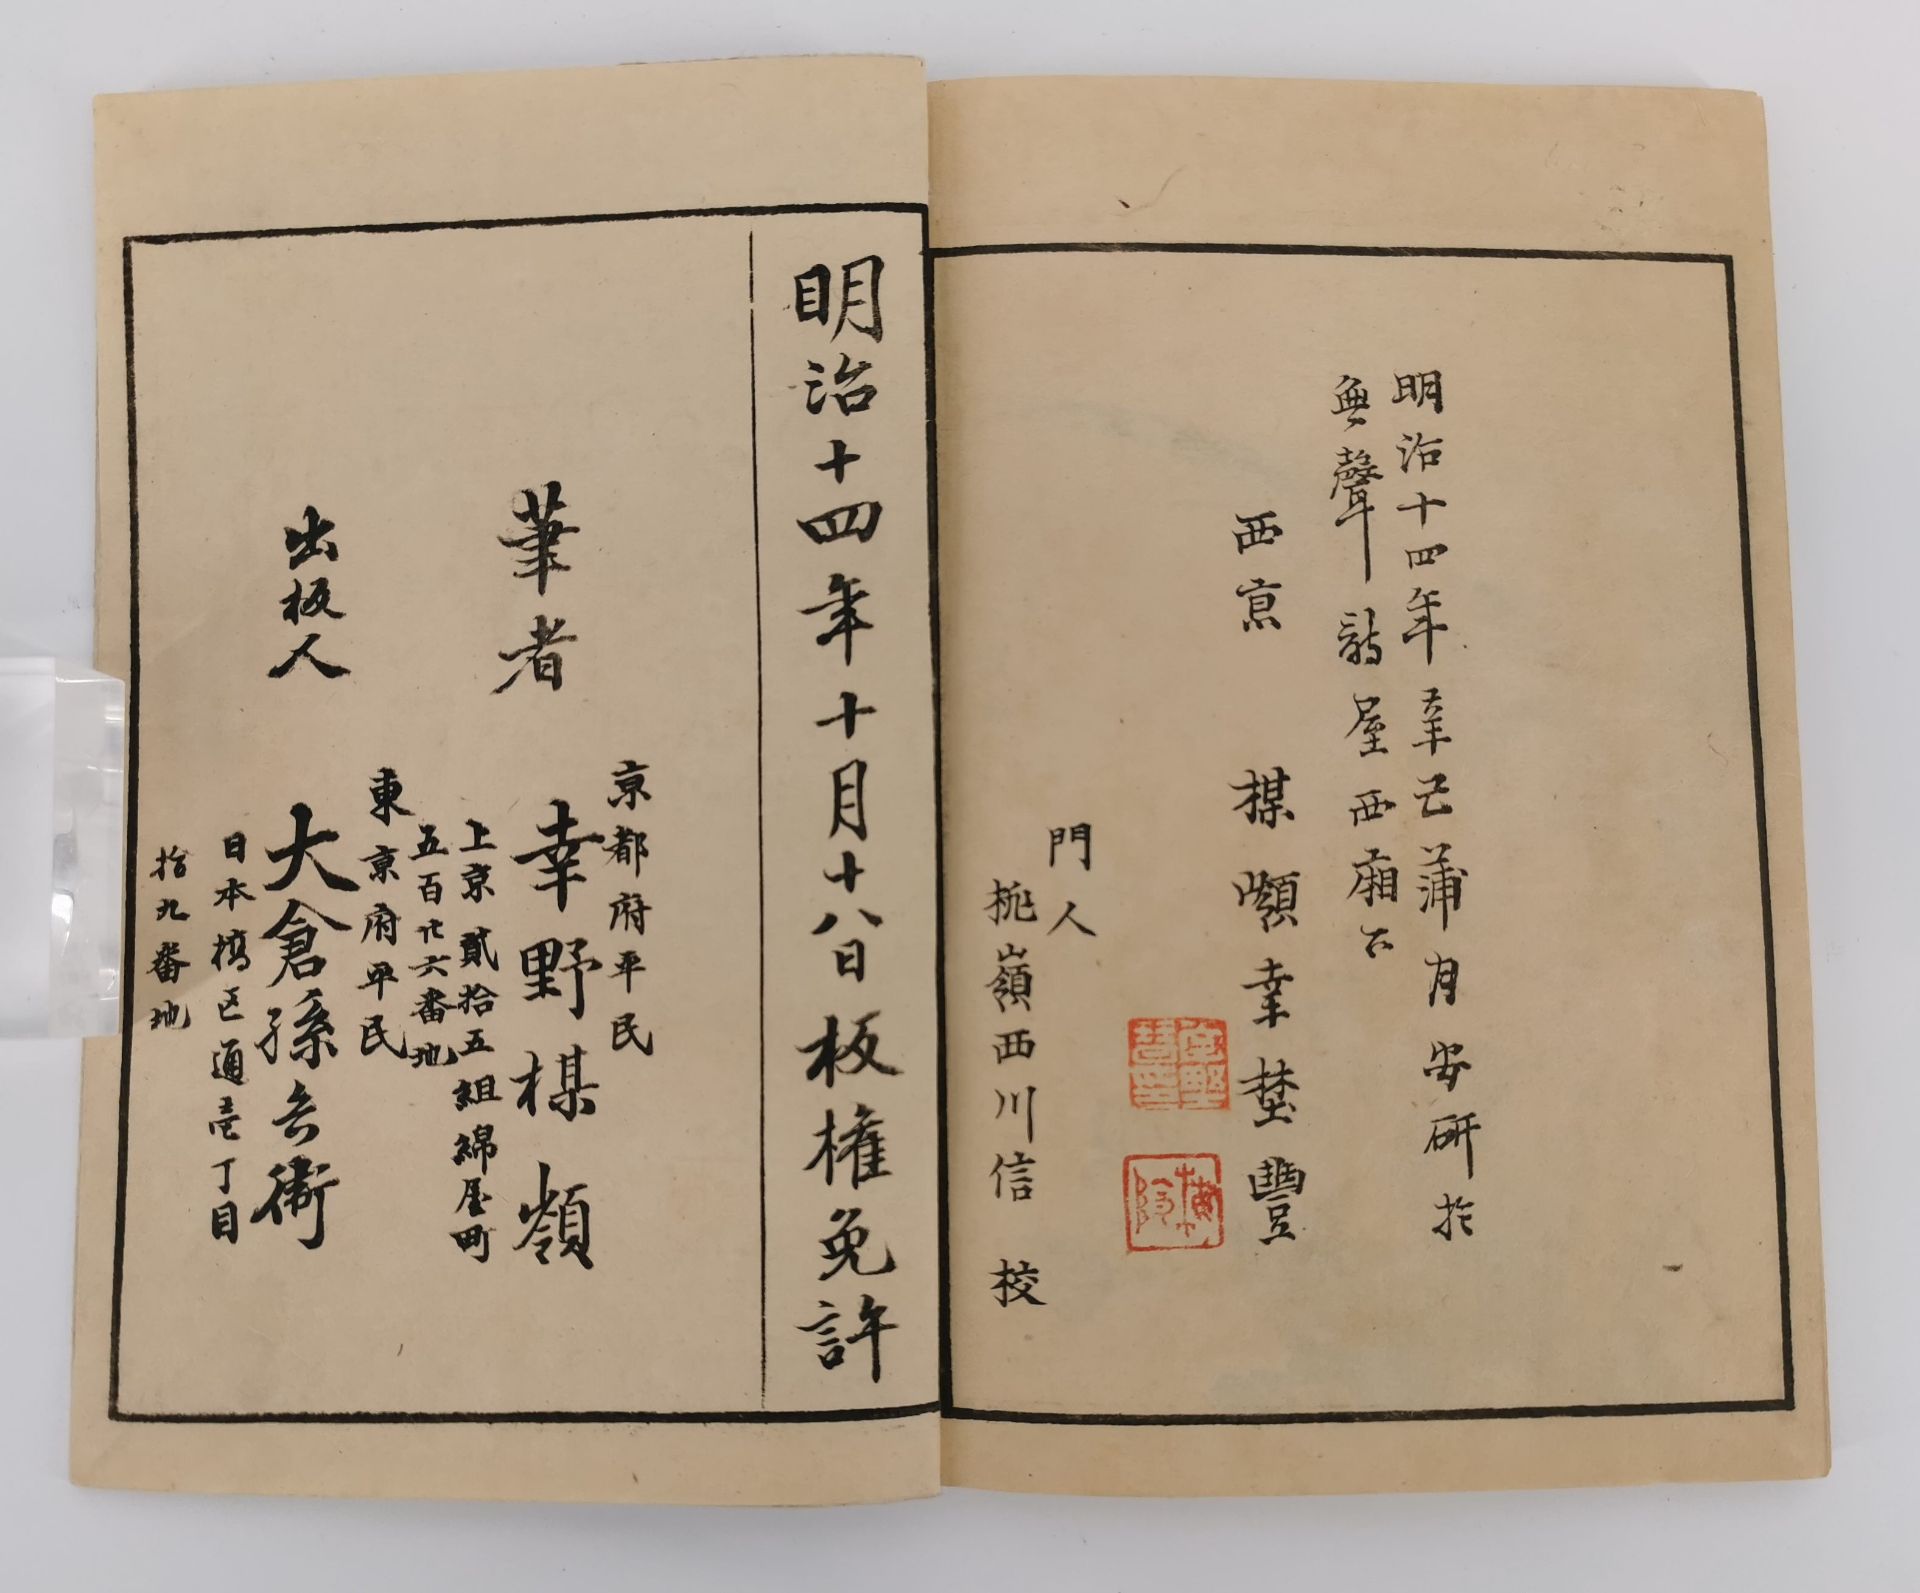 明治十四年辛巳蒲月安研於
無聲詩屋西廂下
西京 楳嶺幸埜豐
門人
桃嶺西川信 校
明治十四年十月十八日板權免許
京都府平民
筆者 幸野楳嶺
上京貳拾五組綿屋町
五百廿六番地
東京府平民
出板人 大倉孫兵衛
日本橋区通壱丁目
拾九番地